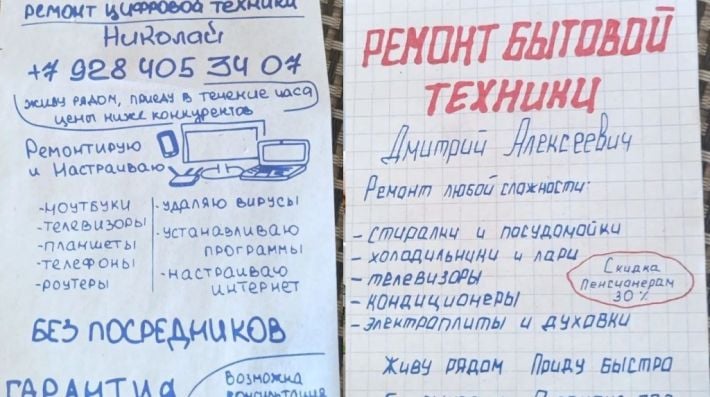 РЕМОНТ ЦИФРОВОЙ ТЕХНИКИ
НИКОЛАЙ
+7 928 405 34 07
ЖИВУ РЯДОМ, ПРИЕДУ В ТЕЧЕНИЕ ЧАСА
ЦЕНЫ НИЖЕ КОНКУРЕНТОВ
РЕМОНТИРУЮ
И НАСТРАИВАЮ
-НОУТБУКИ
-ТЕЛЕВИЗОРЫ
-ПЛАНШЕТЫ
-ТЕЛЕФОНЫ
-РОУТЕРЫ
-УДАЛЯЮ ВИРУСЫ
-УСТАНАВЛИВАЮ
ПРОГРАММЫ
-НАСТРАИВАЮ
ИНТЕРНЕТ
БЕЗ ПОСРЕДНИКОВ
ГАРАНТИЯ
ВОЗМОЖНА
КОНСУЛЬТАЦИЯ
РЕМОНТ БЫТОВОЙ
ТЕХНИКИ
Дмитрий Алексеевич
Ремонт любой сложности:
- СТИРАЛКИ И ПОСУДОМОЙКИ
- ХОЛОДИЛЬНИКИ И ЛАРИ
- ТЕЛЕВИЗОРЫ
- КОНДИЦИОНЕРЫ
- ЭЛЕКТРОПЛИТЫ И ДУХОВКИ
Скидка
Пенсионерам
30%
Живу рядом Приду быстро